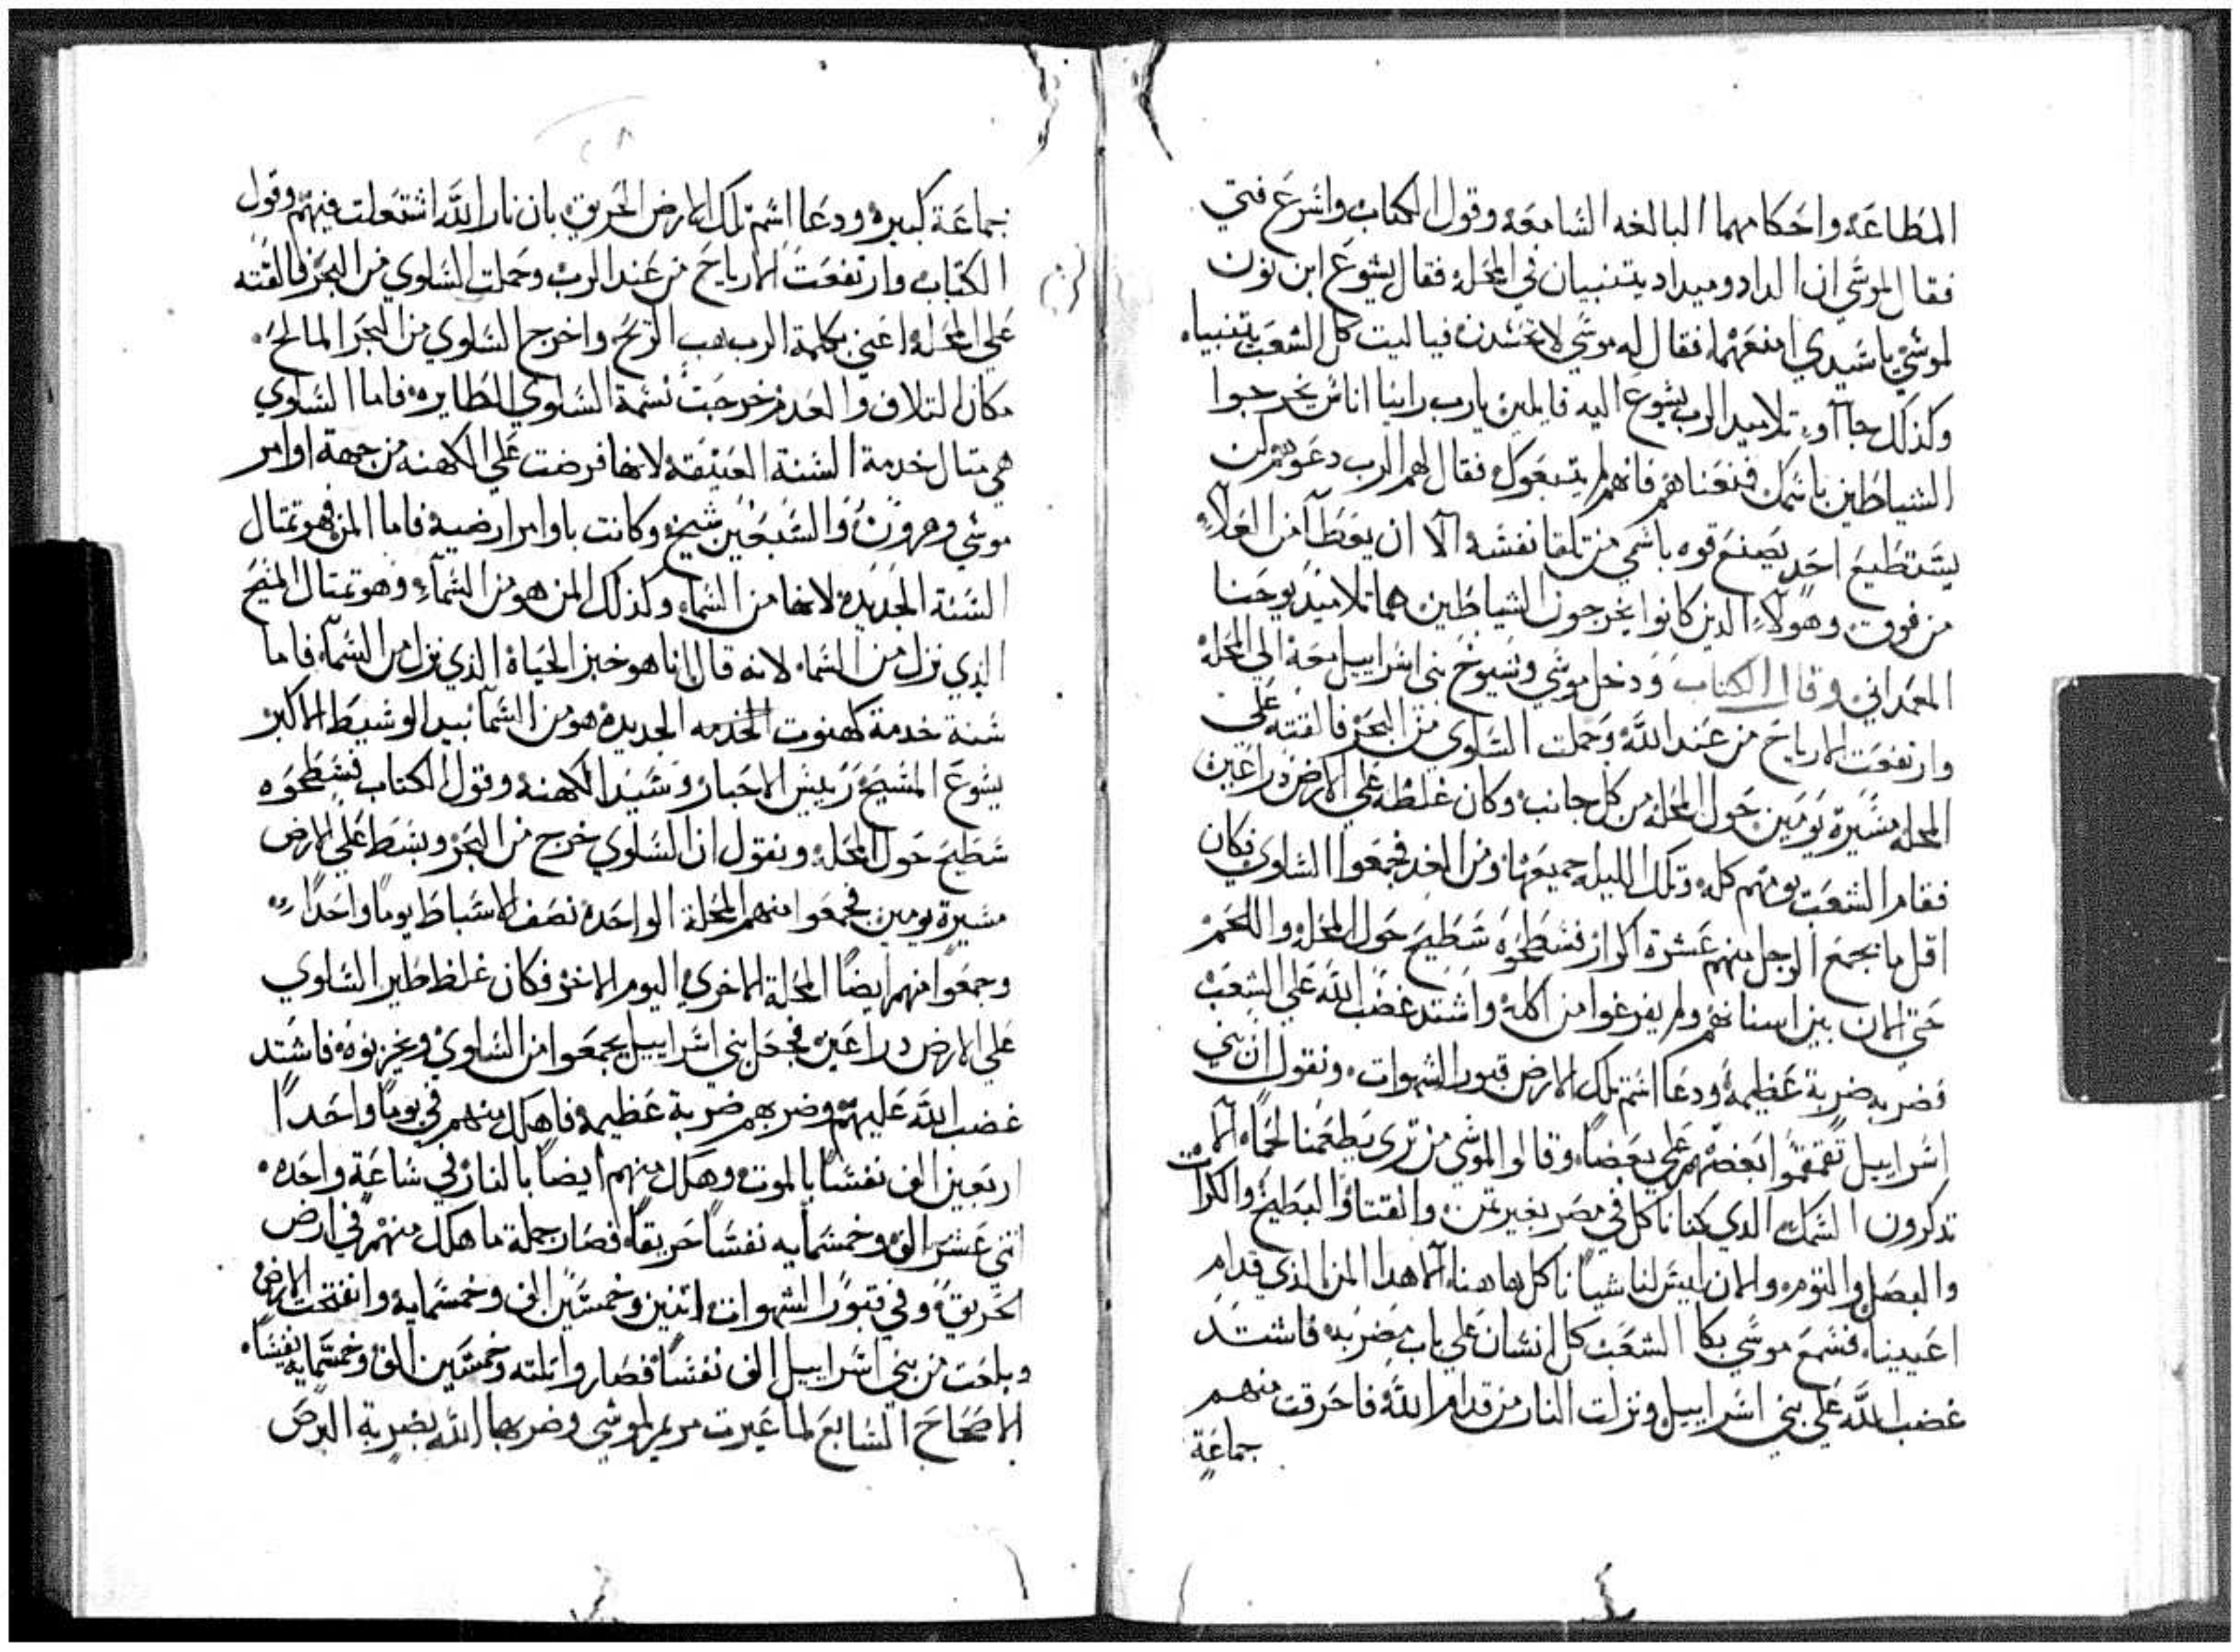 المطاعة واحكامهما البالغه السامعه وقول الكتاب واسرع فتي
فقال لموسي ان الداد وميداد يتنبيان في المحله فقال يشوع ابن نون
لموسي يا سيدي امنعهما فقال له موسي لا تحسدن فيا ليت كل الشعب يتنبياه
وكذلك جاآو تلاميد الرب يشوع اليه قايلين يارب راينا اناس يخرجوا
الشياطين باسمك فمنعناهم فانهم لم يتبعوك فقال لهم الرب دعوهم لن
يستطيع احد يصنع قوه باسمي من تلقا نفسه الا ان يعطآ من العلاء
من فوق وهولآء الدين كانوا يخرجون الشياطين هما تلاميد يوحنا
المعمداني وقال الكتاب ودخل موسي وشيوخ بني اسراييل معه الي المحله
وارتفعت الارياح من عند الله وحملت السلوي من البحر فالقته علي
المحله مسيرة يومين حول المحله من كل جانب وكان غلظه علي الارض دراعين
فقام الشعب يومهم كله وتلك الليله جميعها ومن الغد فجمعوا السلوي فكان
اقل ما يجمع الرجل منهم عشرة اكرار فسطحوه سطيح حول المحله واللحم
حتي الان بين اسنانهم ولم يفرغوا من اكله واشتد غضب الله علي الشعب
فضربه ضربة عظيمه ودعا اسم تلك الارض قبور الشهوات ونقول ان بني
اسراييل تقمقموا بعضهم علي بعضا وقالوا لموسي من تري يطعمنا لحما الا
تدكرون السمك الدي كنا ناكل في مصر بغير تمن والقتاوا البطيخ والكرات
والبصل والتوم والان ليس لنا شيا ناكل هاهنا الا هدا المن الذي قدام
اعيينا فسمع موسي بكا الشعب كل انسان علي باب مضربه فاشتد
غضب الله علي بني اسراييل ونزلت النار من قدام الله فاحرقت منهم
جماعة
جماعة كبيره ودعا اسم تلك الارض الحريق بان نار الله اشتعلت فيهم وقول
الكتاب وارتفعت الارياح من عند الرب وحملت السلوي من البحر فالقته
علي المحله اعني بكلمة الرب هب الريح واخرج السلوي من البحر المالح
مكان التلاف والعدم خرجت نسمة السلوي الطايره فاما السلوي
هي متال خدمة السنة العتيقه لانها فرضت علي الكهنه من جهة اوامر
موسي وهرون والسبعين شيخ وكانت باوامر ارضيه فاما المن فهو تمتال
السنة الجديده لانها من السماء وكذلك المن هو من السمآء وهو تمتال المسيح
الذي نزل من السماء لانه قال انا هو خبز الحياة الذي نزل من السمآء فاما
سنة خدمة كهنوت الخدمه الجديده هو من السمآ بيد الوسيط الاكبر
يسوع المسيح رييس الاحبار وسيد الكهنه وقول الكتاب فسطحوه
سطيح حول المحله ونقول ان السلوي خرج من البحر وبسط علي الارض
مسيرة يومين فجمعوا منهم المحلة الواحده نصف الاسباط يوما واحدا
وجمعوا منهم ايضا المحلة الاخري اليوم الاخر فكان غلظ طير السلوي
علي الارض دراعين فجعل بني اسراييل يجمعوا من السلوي ويخزنوه فاشتد
غضب الله عليهم وضربهم ضربة عظيمه فاهلك منهم في يوما واحدا
اربعين الف نفسا بالموت وهلك منهم ايضا بالنار في ساعة واحده
اتني عشر الف وخمسمايه نفسا حريقا فصار جملة ما هلك منهم في ارض
الحريق وفي قبور الشهوات اتنين وخمسين الف وخمسمايه وانفتحت الارض
وبلعت من بني اسراييل الف نفسا فصاروا تلته وخمسين الف وخمسمايه نفسا
الاصحاح السابع لما عيرت مريم لموسي وضربها الله بضربة البرص